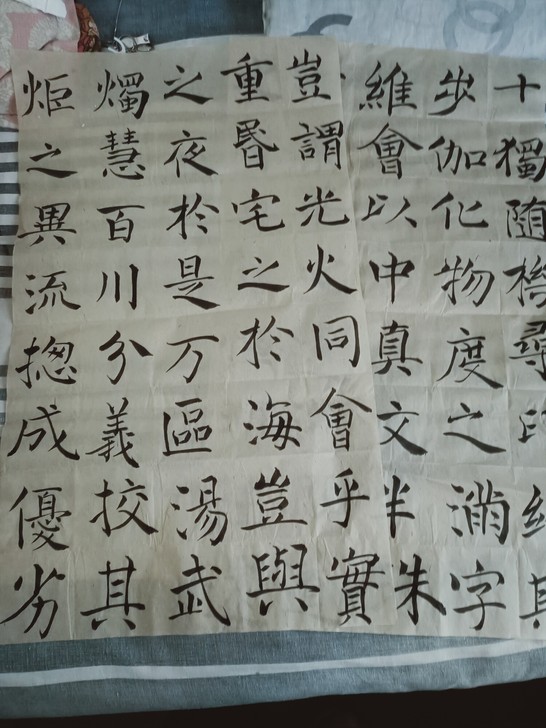 十獨隨機尋
步伽化物度之滿字
維會以中真文半朱
豈謂光火同會乎實
重昬宅之於海豈與
之夜於是万區湯武
燭慧百川分義挍其
炬之異流揔成優劣